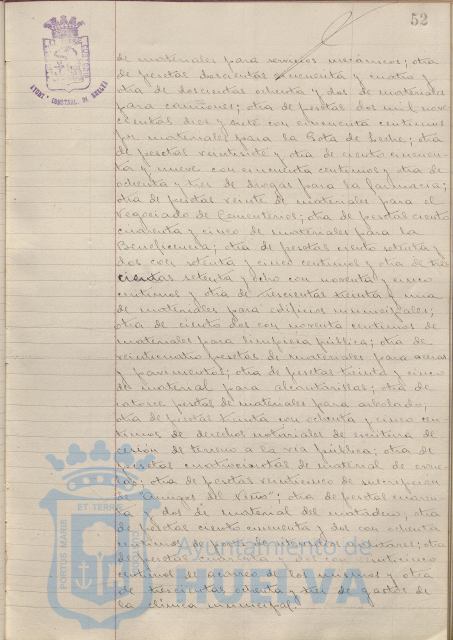 52
AYUNT° CONSTNAL. DE HUELVA
de materiales para servicios mecánicos; otra
de pesetas doscientas cincuenta y cuatro y
otra de doscientas ochenta y dos de materiales
para camiones; otra de pesetas dos mil nove
cientas diez y siete con cincuenta centimos
por materiales para la Gota de Leche; otra
de pesetas veintisiete y otra de ciento cincuen
ta y nueve con cincuenta centimos y otra de
ochenta y tres de drogas para la farmacia;
otra de pesetas veinte de materiales para el
Negociado de Cementerios; otra de pesetas ciento
cuarenta y cinco de materiales para la
Beneficencia; otra de pesetas ciento setenta y
dos con setenta y cinco centimos y otra de tres
cientas setenta y ocho con noventa y cinco
centimos y otra de trescientas treinta y una
de materiales para edificios municipales;
otra de ciento dos con noventa centimos de
materiales para limpieza pública; otra de
veinticuatro pesetas de materiales para aceras
y pavimentos; otra de pesetas treinta y cinco
de material para alcantarillas; otra de
catorce pesetas de materiales para arbolado;
otra de pesetas treinta con ochenta y cinco cen
timos de derechos notariales de escritura de
cesion de terreno a la via pública; otra de
pesetas cuatrocientas de material de escue
las; otra de pesetas veinticinco de suscripcion
de "Amigos del Niño"; otra de pesetas cuaren
ta y dos de material del matadero; otra
de pesetas ciento cincuenta y dos con ochenta
centimos de porte de utensilios militares; otra
de pesetas cuarenta y dos con veinticinco
centimos de acarreo de los mismos y otra
de trescientas ochenta y tres de gastos de
la clínica municipal.
PORTUS MARIS ET TERRAE CUSTODIA
Ayuntamiento de
HUELVA